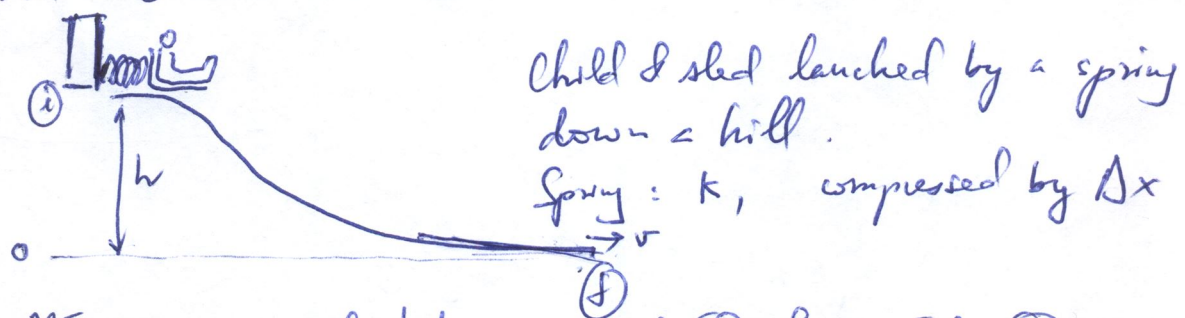 Child & sled lauched by a spring
down a hill.
i
h
Spring : k, compressed by Δx
0
v
f